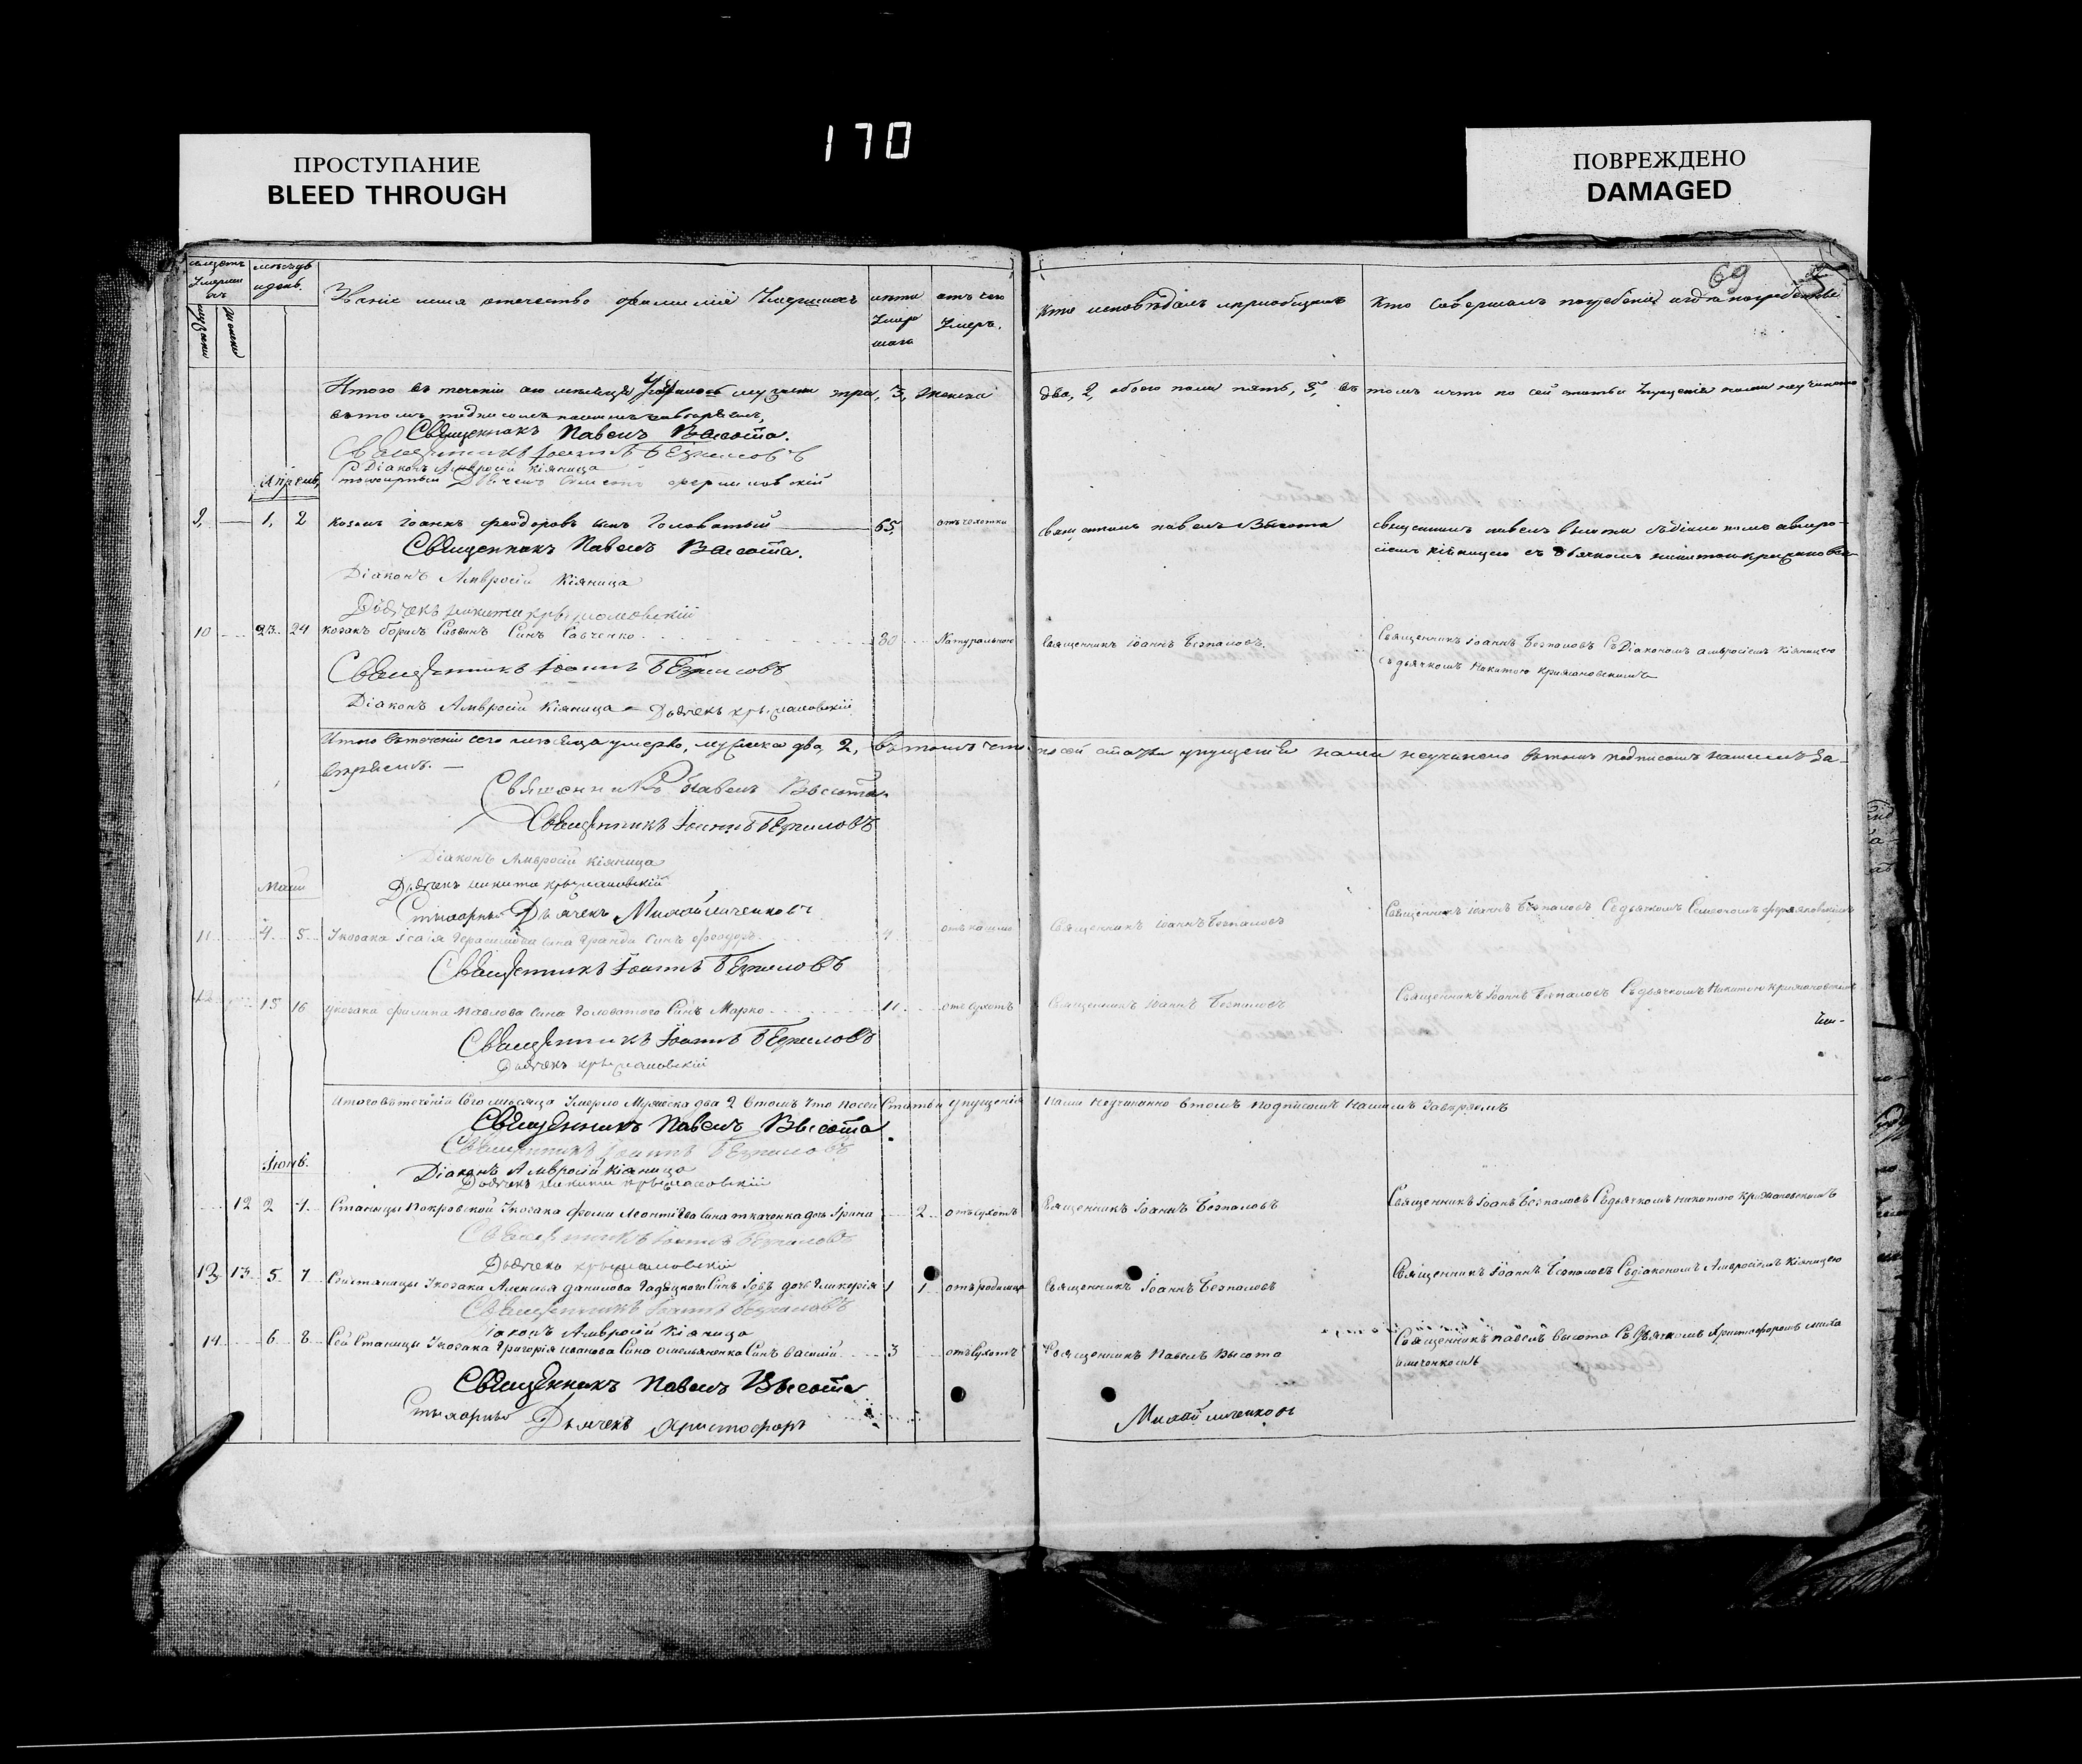 170
ПРОСТУПАНИЕ
BLEED THROUGH
ПОВРЕЖДЕНО
DAMAGED
69
Званіе имя отечество фамилія Умершихъ
лета Умершаго
отъ чего Умеръ.
Кто исповѣдалъ и пріобщалъ
Кто Совершалъ погребеніе и гдѣ погребены
Итого въ теченіи сего мѣсяца Умерло мужеска три, 3, женска
два, 2, обоего пола пять, 5, въ томъ что по сей статьи Упущенія нами неучинено
въ томъ подписомъ нашимъ завѣряемъ,
Священникъ Павелъ Высота.
Священникъ Іоаннъ Безпаловъ
Діаконъ Амвросій Кіяница
Апрель,
9, 1, 2 козакъ Іоаннъ Феодоровъ сынъ Головатый 65, отъ чахотки
Священникъ Павелъ Высота
священникъ павелъ высота съ діакономъ амвро-
сіемъ кіяницею съ дьячкомъ
Священникъ Павелъ Высота.
Діаконъ Амвросій Кіяница
Дьячекъ никита крыжановскій
10 23 24 козакъ борисъ Саввинъ Синъ Савченко 80 Натуральною
Священникъ Іоаннъ Безпаловъ.
Священникъ Іоаннъ Безпаловъ Съ Діакономъ амвросіемъ Кіяницею
съ дьячкомъ Никитою Крижановскимъ
Священникъ Іоаннъ Безпаловъ
Діаконъ Амвросій Кіяница Дьячекъ крыжановскій
Итого въ теченіи сего мѣсяца умерло, мужеска два, 2, въ томъ что по сей статьи упущенія нами неучинено въ томъ подписомъ нашимъ за-
вѣряемъ.
Священникъ Павелъ Высота
Священникъ Іоаннъ Безпаловъ
Діаконъ Амвросій Кіяница
Маий
Дьячекъ никита крыжановскій
Стихарный Дьячекъ Михайличенковъ
11 4 5 У козака Ісаія Герасимова сина Гранды синъ Феодоръ
Священникъ Іоаннъ Безпаловъ
Священникъ Іоаннъ Безпаловъ Съ дьячкомъ
Священникъ Іоаннъ Безпаловъ
15 16 У козака филипа Павлова Сина Головатого Синъ Марко 11 отъ Сухотъ
Священникъ Іоаннъ Безпаловъ
Священникъ Іоаннъ Безпаловъ Съ дьячкомъ Никитою Крижановскимъ
Священникъ Іоаннъ Безпаловъ
Дьячекъ крыжановскій
Итого въ теченіи Сего мѣсяца Умерло Мужеска два 2 втомъ что посей Статьи упущенія нами неучинанно втомъ подписомъ нашимъ Завѣряемъ
Священникъ Павелъ Высота
Священникъ Іоаннъ Безпаловъ
Іюнь.
Діаконъ Амвросій Кіяница
Дьячекъ никита крыжановскій
12 2 4 Станицы Покровской У козака фоми Леонтіева Сина ткаченка дочь Ірина 2 отъ Сухотъ
Священникъ Іоаннъ Безпаловъ
Священникъ Іоаннъ Безпаловъ Съ дьячкомъ никитою крижановскимъ
Священникъ Іоаннъ Безпаловъ
Дьячекъ крыжановскій
13 13 5 7 Сей станицы У козака Алексѣя данилова Гадяцкого Синъ Іовъ дочь Гликерія 1 1 отъ родимца
Священникъ Іоаннъ Безпаловъ
Священникъ Іоаннъ Безпаловъ Съ діакономъ Амвросіемъ Кіяницею
Священникъ Іоаннъ Безпаловъ
Діаконъ Амвросій Кіяница
14 6 8 Сей Станицы У козака Григорія иванова Сина Омельяненка Синъ василій 3 отъ Сухотъ
Священникъ Павелъ Высота
Священникъ павелъ высота Съ дьячкомъ Христофоромъ миха
иличенкомъ
Священникъ Павелъ Высота
Стихарный Дьячекъ Христофоръ Михайличенковъ